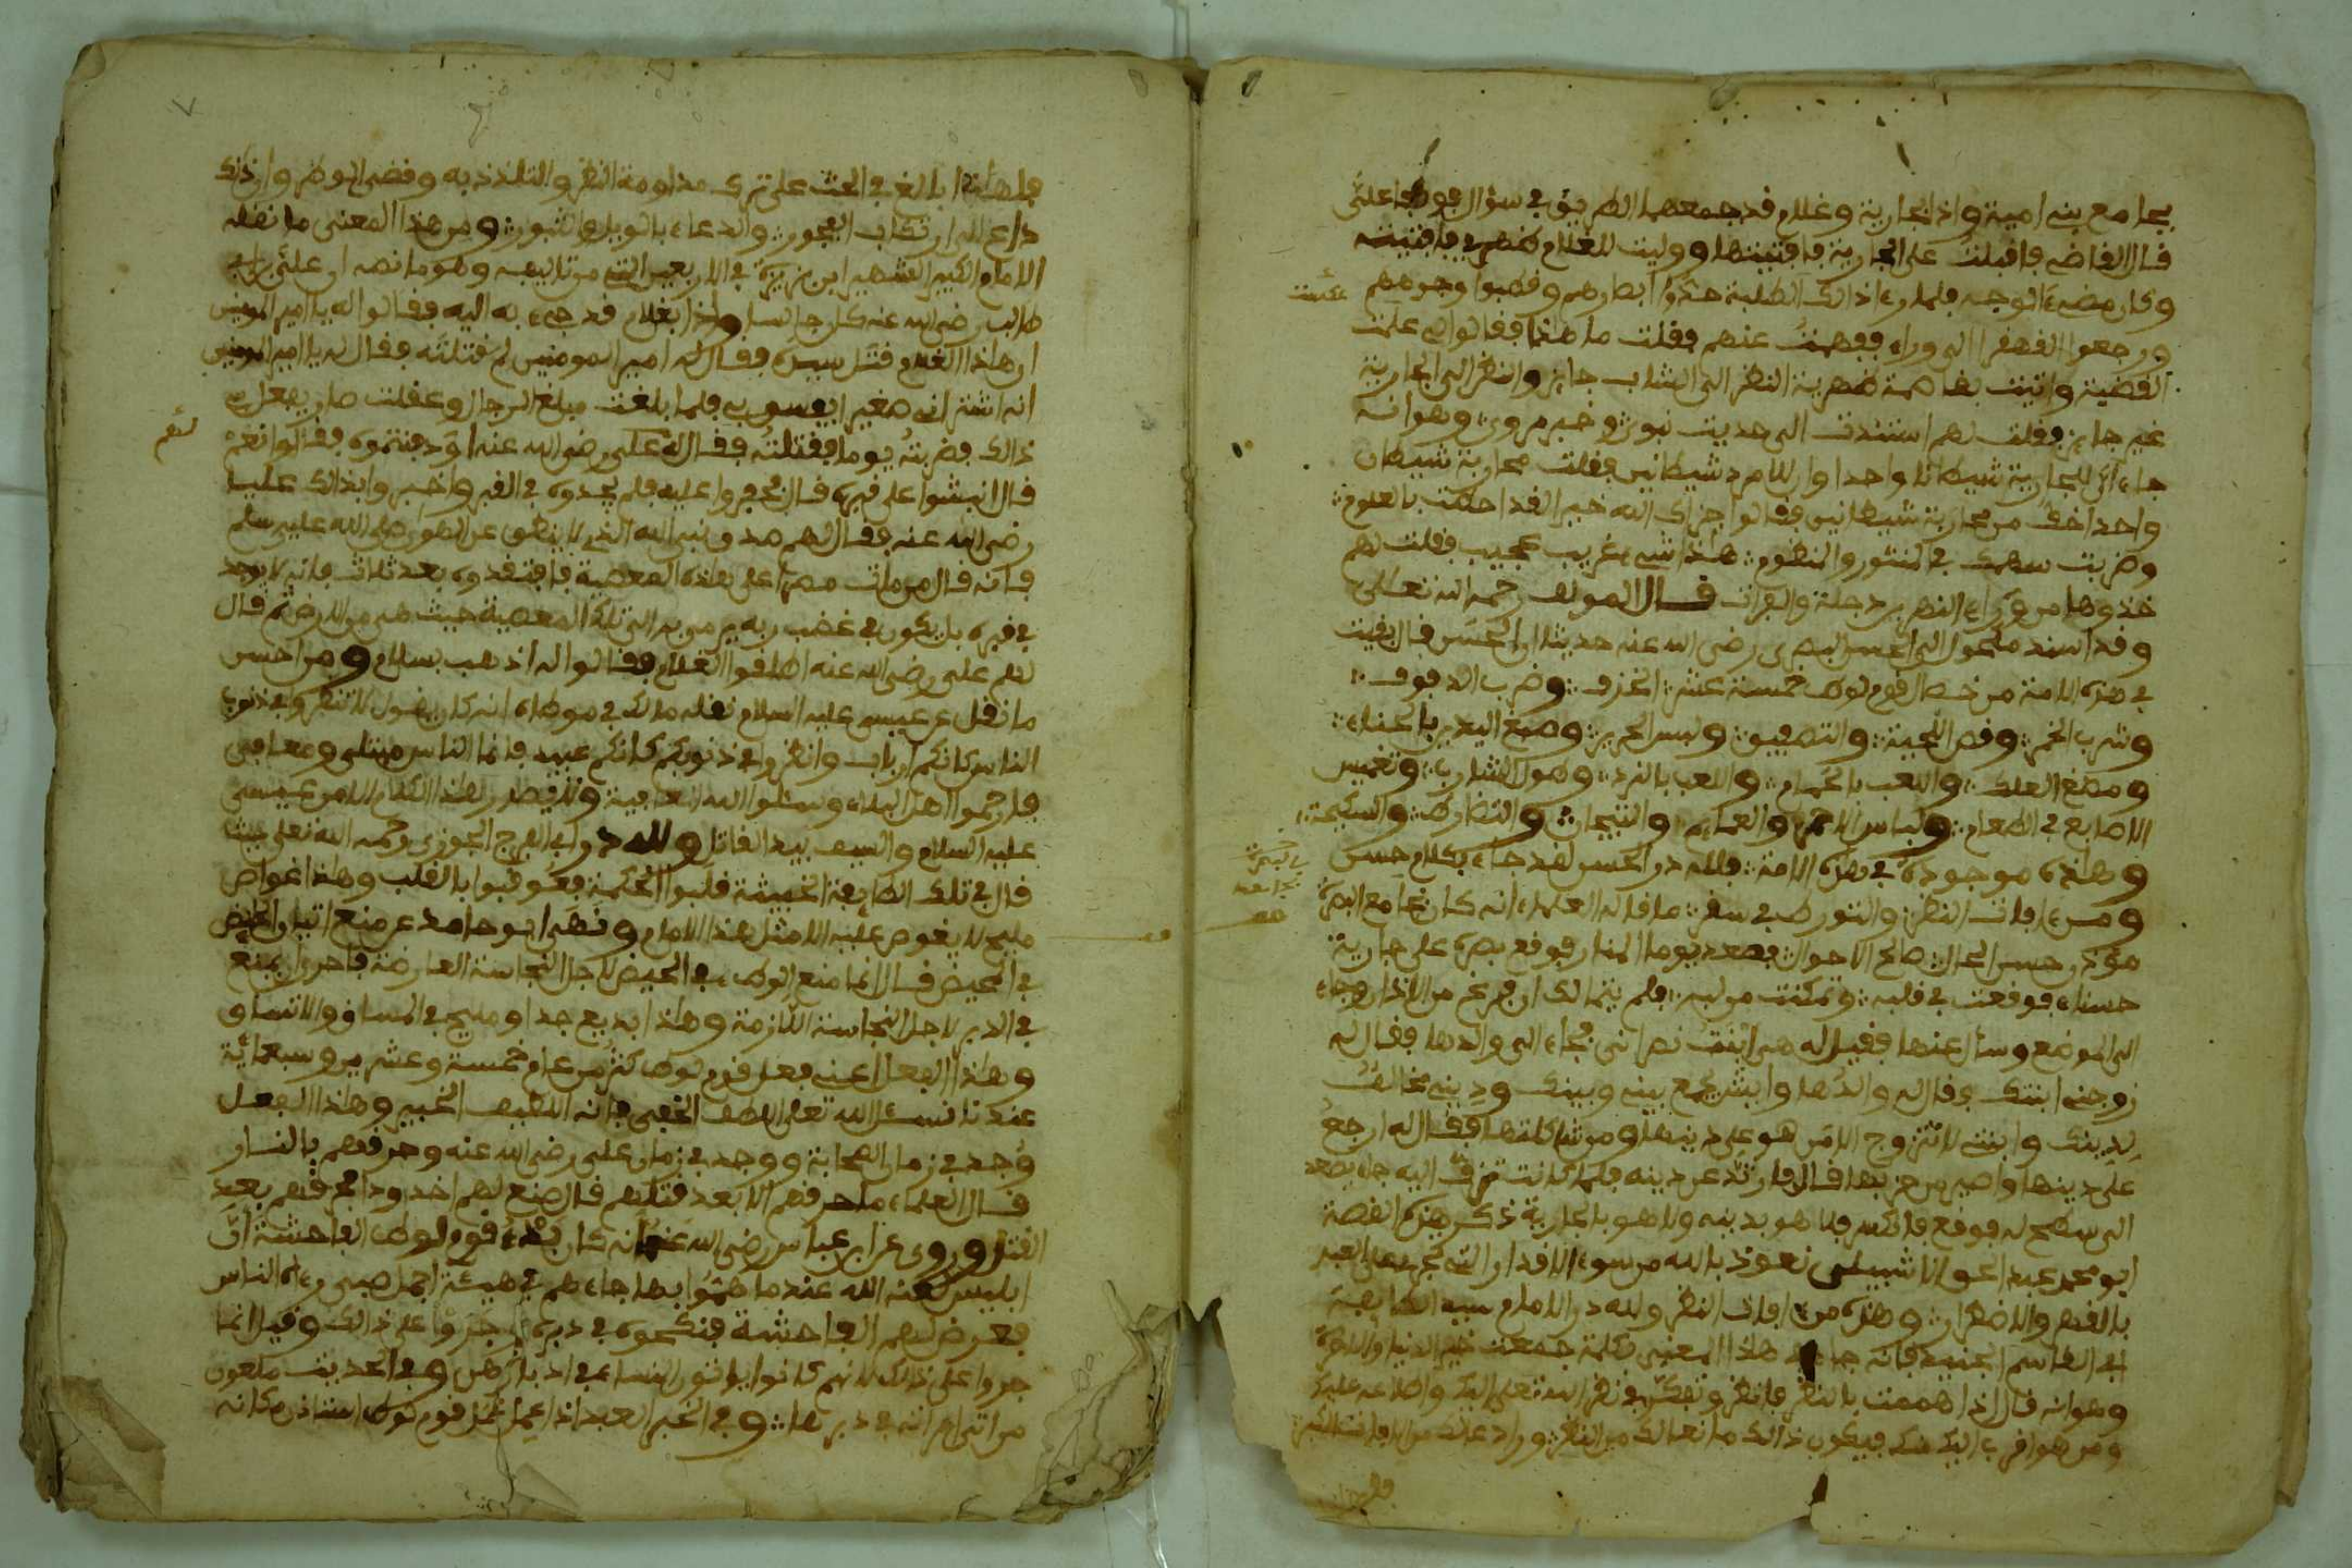 بجامع بني امية واذا بجارية وغلام قد جمعهما الطريق في سؤال فوقفا علىّ
قال القاضي فاقبلت على الجارية فافتيتها ووليت للغلام ظهري فافتيته
وكان مضى الوجه فلما رءا ذالك الطلبة حدّوا ابصارهم وقطبوا وجوههم
ورجعوا القهقرا الى وراء ففهمت عنهم فقلت ما هذا فقالوا لي علمت
القضية واتيت بقاصمة ظهرية النظر الى الشاب جايز والنظر الى الجارية
غير جايز فقلت لهم استندت الى حديث نبوي وخبر مروي وهو انه
جاء ان للجارية شيطانا واحدا وان للامرد شيطانين فقلت محاربة شيطان
واحد اخف من محاربة شيطانين فقالوا جزاك الله خيرا لقد احطت بالعلوم
وضربت بسهمك في المنثور والمنظوم هاذا شيء غريب عجيب فقلت لهم
خذوها من وراء النهر بين دجلة والفرات قال المولف رحمه الله تعالى
وقد اسند مكحول الى الحسن البصري رضي الله عنه حديثا ان الحسن قال بقيت
في هذه الامة من خصال قوم لوط خمسة عشر الخزف وضرب الدفوف
وشرب الخمر وقص اللحية والتصفيق ولبس الحرير وصبغ اليدين بالحناء
ومضغ العلك واللعب بالحمام واللعب بالنرد وطول الشارب وتغميس
الاصابع في الطعام ولباس الاحمر والعمايم والتيجان والتضارط والسكيحة
وهاذه موجودة في هذه الامة فلله در الحسن لقد جاء بكلام حسن
ومن ءافات النظر والتورط في سقر ما قاله العلماء انه كان بجامع البصرة
موذن حسن الحال صالح الاحوال فصعد يوما المنار فوقع بصره على جارية
حسناء فوقعت في قلبه وتمكنت من لبه فلم يتمالك ان فرغ من الاذان وجاء
الى الموضع وسأل عنها فقيل له هي ابنت نصراني فجاء الى والدها فقال له
زوجني ابنتك فقال له والدها وايش يجمع بيني وبينك وديني مخالف
لدينك وابنتي لا تتزوج الا من هو على دينها ومن شاكلتها فقال له ارجع
على دينها واصير من حزبها قال فارتد عن دينه فلما كانت تزف اليه جاء يصعد
الى سطح له فوقع فانكسر فلا هو بدينه ولا هو بالجارية ذكر هذه القصة
ابو محمد عبد الحق الاشبيلي نعوذ بالله من سوء الاقدار التي تجري على العبد
بالقهر والاضطرار وهذه من ءافات النظر ولله در الامام سيد الطايفة
ابي القاسم الجنيد فانه جاء في هاذا المعنى بكلمة جمعت خير الدنيا والاخرة
وهو انه قال اذا هممت بالنظر فانظر وتفكر في نظر الله تعلى اليك واطلاعه عليك
ومن هو اقرب اليك منك فيكون ذالك مانعا لك من النظر ورادعا لك من الافات الكبر
فلهاذا بالغ في الحث على ترك مداومة النظر والتلذذ به وقضى الوطر وان ذلك
داع الى ارتكاب الفجور والدعاء بالويل والثبور ومن هذا المعنى ما نقله
الامام الكبير الشهير ابن بزيزة في الاربعين التي من تاليفه وهو ما نصه ان علي بن ابي
طالب رضي الله عنه كان جالسا واذا بغلام قد جيء به اليه فقالوا له يا امير المومنين
ان هاذا الغلام قتل سيده فقال له امير المومنين لم قتلته فقال له يا امير المومنين
انه اشتراني صغيرا يفسق بي فلما بلغت مبلغ الرجال وعقلت صار يفعل بي
ذالك فضربته يوما فقتلته فقال له علي رضي الله عنه او دفنتموه فقالوا نعم
قال انبشوا على قبره قال فحفروا عليه فلم يجدوه في القبر واخبروا بذالك عليا
رضي الله عنه فقال لهم صدق نبي الله الذي لا ينطق عن الهوى صلى الله عليه وسلم
فانه قال من مات مصرا على هاذه المعصية فافتقدوه بعد ثلاث فانه لا يوجد
في قبره بل يكون في غضب ربه يرمى به الى تلك المعصية حيث هي من الارض ثم قال
لهم علي رضي الله عنه اطلقوا الغلام فقالوا له اذهب بسلام ومن احسن
ما نقل عن عيسى عليه السلام نقله مالك في موطاه انه كان يقول لا تنظروا في ذنوب
الناس كانكم ارباب وانظروا في ذنوبكم كانكم عبيد فانما الناس مبتلى ومعافى
فارحموا اهل البلاء وسئلوا الله العافية ولا يصدر هذا الكلام الا من عيسى
عليه السلام والسيف بيد القاتل ولله در ابي الفرج الجوزي رحمه الله تعلى حيث
قال في تلك الطايفة الخبيثة قلبوا الحكمة فعوقبوا بالقلب وهاذا غواص
مليح لا يغوص عليه الا مثل هذا الامام ونهى ابو حامد عن منع اتيان الحيض
في المحيض قال انما منع الوطء في الحيض لاجل النجاسة العارضة فاحرى ان يمنع
في الدبر لاجل النجاسة اللازمة وهاذا بديع جدا ومليح في المساق والاتساق
وهاذا الفعل اعني فعل قوم لوط كثر من عام خمسة وعشرين وسبعمائة
عندنا نسئل الله تعلى اللطف الخفي فانه اللطيف الخبير وهاذا الفعل
وجد في زمان الصحابة ووجد في زمان علي رضي الله عنه وحرقهم بالنار
قال العلماء ما حرقهم الا بعد قتلهم قال صنع لهم اخدودا فحرقهم بعد
القتل وروي عن ابن عباس رضي الله عنهما انه كان بدء قوم لوط الفاحشة ان
ابليس لعنه الله عندما هموا بها جاءهم في هيئة اجمل صبي رءاه الناس
فعرض لهم الفاحشة فنكحوه في دبره ثم جروا على ذالك وقيل انما
جروا على ذالك لانهم كانوا ياتون النساء في ادبارهن وفي الحديث ملعون
من اتى امراته في دبرها وفي الخبر العبد اذا عمل عمل قوم لوط استاذن مكانه